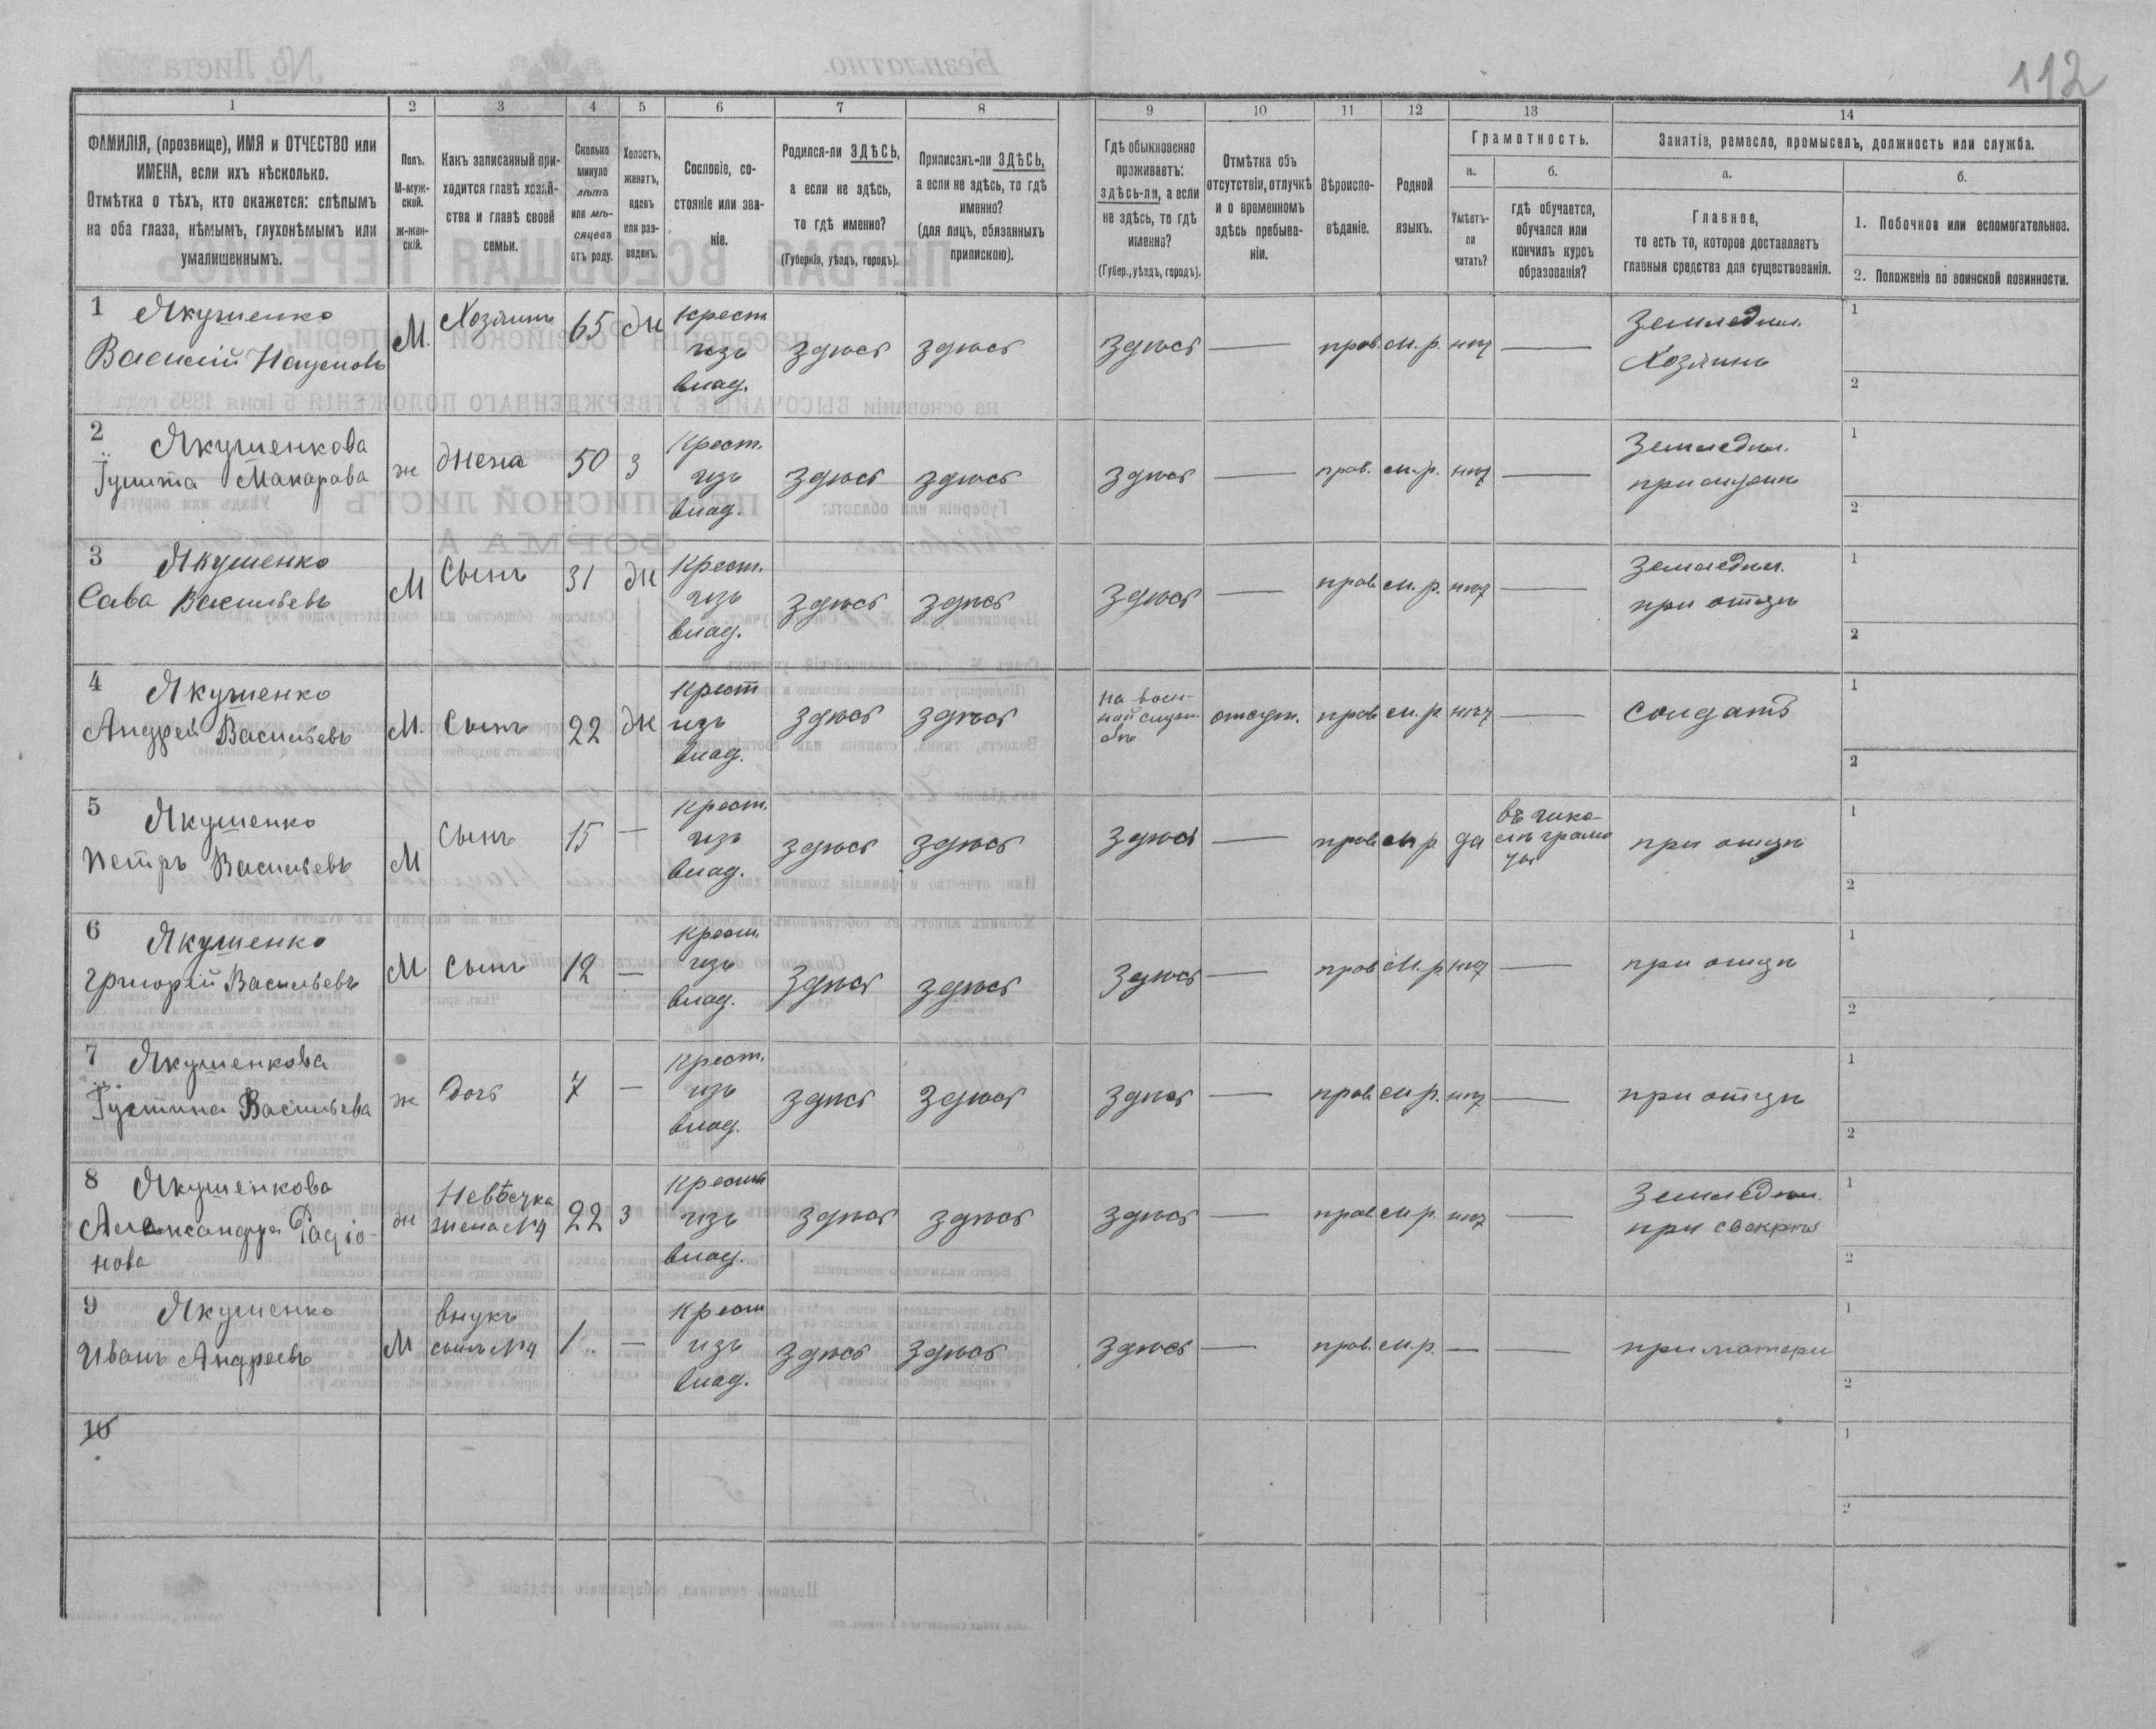 112
1 2 3 4 5 6 7 8 9 10 11 12 13 14
ФАМИЛІЯ, (прозвище), ИМЯ и ОТЧЕСТВО или
ИМЕНА, если ихъ нѣсколько.
Отмѣтка о тѣхъ, кто окажется: слѣпымъ
на оба глаза, нѣмымъ, глухонѣмымъ или
умалишеннымъ.
Полъ.
М-муж-
ской.
ж-жен-
скій.
Какъ записанный при-
ходится главѣ хозяй-
ства и главѣ своей
семьи.
Сколько
минуло
лѣтъ
или мѣ-
сяцевъ
отъ роду.
Холостъ,
женатъ,
вдовъ
или раз-
веденъ.
Сословіе, со-
стояніе или зва-
ніе.
Родился-ли ЗДѢСЬ,
а если не здѣсь,
то гдѣ именно?
(Губернія, уѣздъ, городъ).
Приписанъ-ли ЗДѢСЬ,
а если не здѣсь, то гдѣ
именно?
(для лицъ, обязанныхъ
припискою).
Гдѣ обыкновенно
проживаетъ:
здѣсь-ли, а если
не здѣсь, то гдѣ
именно?
(Губер., уѣздъ, городъ).
Отмѣтка объ
отсутствіи, отлучкѣ
и о временномъ
здѣсь пребыва-
ніи.
Вѣроиспо-
вѣданіе.
Родной
языкъ.
Грамотность.
а.
Умѣетъ-
ли
читать?
б.
гдѣ обучается,
обучался или
кончилъ курсъ
образованія?
Занятіе, ремесло, промыселъ, должность или служба.
а.
Главное,
то есть то, которое доставляетъ
главныя средства для существованія.
б.
1. Побочное или вспомогательное.
2. Положеніе по воинской повинности.
1 Якушенко
Василій Наумовъ
М. Хозяинъ 65 Ж
Крест
изъ
влад.
здѣсь здѣсь здѣсь — прав. м. р. нѣт —
Земледѣл.
Хозяинъ
1
2
2 Якушенкова
Макарова
ж Жена 50 З
Крест.
изъ
влад.
здѣсь здѣсь здѣсь — прав. м. р. нѣт —
Земледѣл.
при мужѣ
1
2
3 Якушенко
Сава Васильевъ
М Сынъ 31 Ж
Крест.
изъ
влад.
здѣсь здѣсь здѣсь — прав. м. р. нѣт —
Земледѣл.
при отцѣ
1
2
4 Якушенко
Андрей Васильевъ
М. Сынъ 22 Ж
Крест
изъ
влад.
здѣсь здѣсь
на воен-
ной служ-
бѣ
отсут. прав. м. р. нѣт —
солдатъ
1
2
5 Якушенко
Петръ Васильевъ
М Сынъ 15 —
Крест.
изъ
влад.
здѣсь здѣсь здѣсь — прав. м. р. да
въ шко-
лѣ
при отцѣ
1
2
6 Якушенко
Григорій Васильевъ
М Сынъ 12 —
Крест.
изъ
влад.
здѣсь здѣсь здѣсь — прав. м. р. нѣт —
при отцѣ
1
2
7 Якушенкова
Їустина Васильева
ж Дочь 7 —
Крест.
изъ
влад.
здѣсь здѣсь здѣсь — прав. м. р. нѣт —
при отцѣ
1
2
8 Якушенкова
Александра Радіо-
нова
ж
Невѣстка
жена №4
22 З
Крест
изъ
влад.
здѣсь здѣсь здѣсь — прав. м. р. нѣт —
Земледѣл.
при свекрѣ
1
2
9 Якушенко
Иванъ Андреевъ
М
внукъ
сынъ №4
1 —
Крест
изъ
влад.
здѣсь здѣсь здѣсь — прав. м. р. — —
при матери
1
2
10
1
2